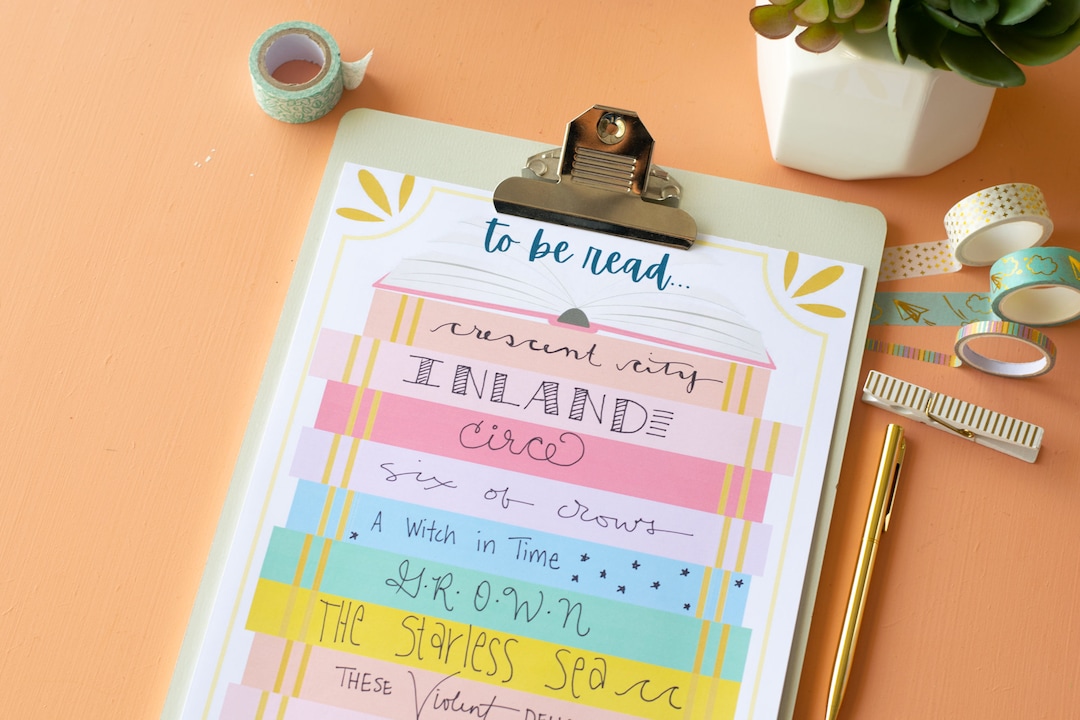 to be read...
crescent city
INLAND
circe
six of crows
A Witch in Time
G.R.O.W.N
THE Starless Sea
THESE Violent